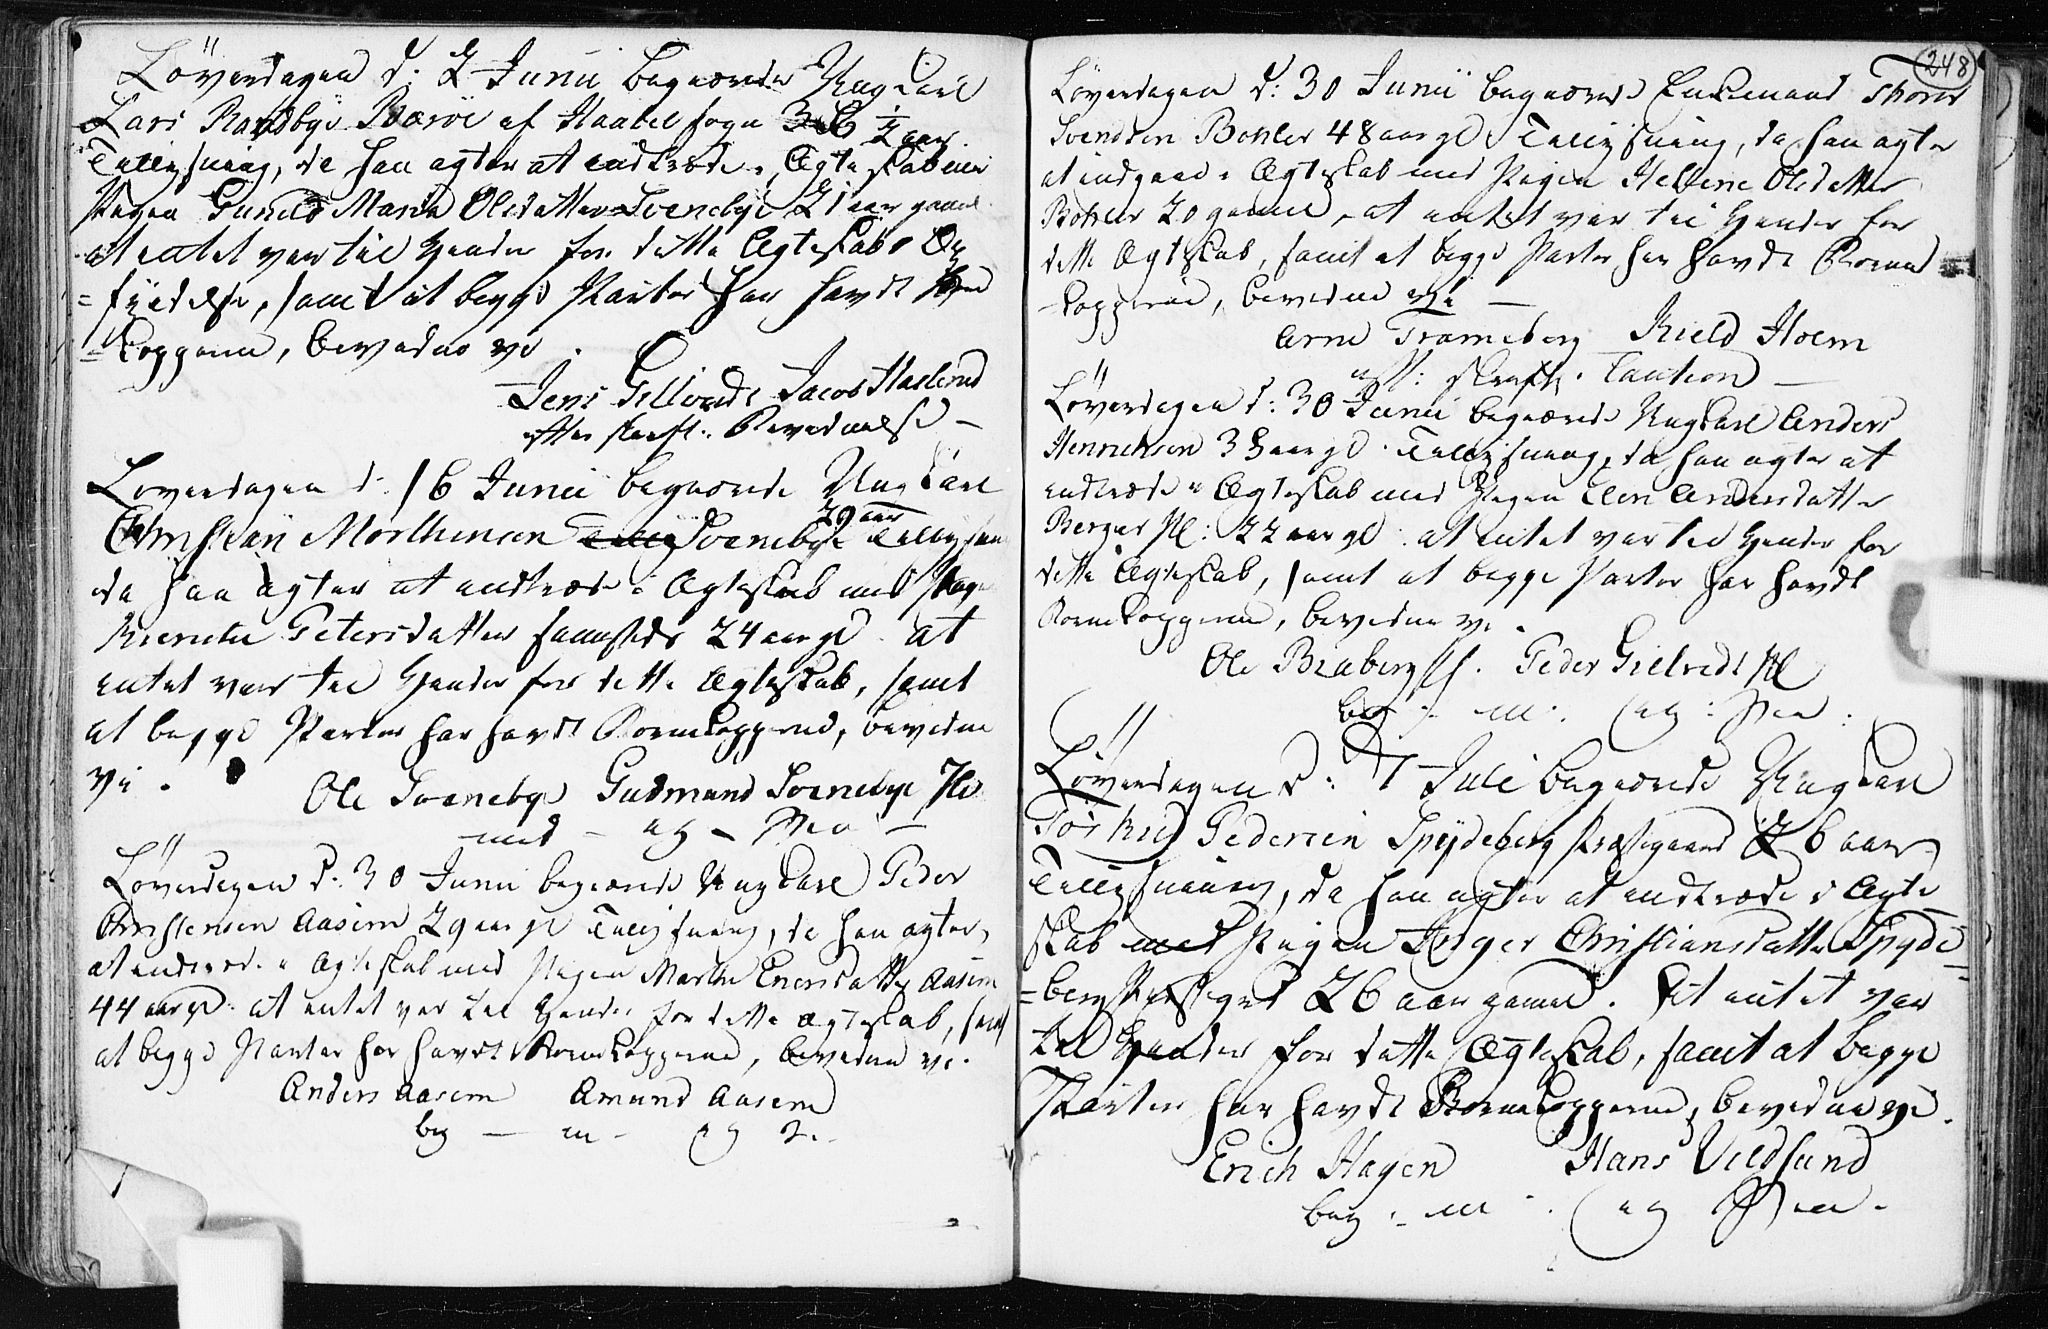 Löverdagen d: 2 Junii begærede Ungkarl
Lars Randbye Bærøe af Haabel sogn 36 1/2 aar
Tillysning, da han agter at indtræde i Ægteskab med
Pigen Gunild Maria Olsdatter Svenebye 21 aar gamel
at intet var til Hinder for dette Ægteskabs Op
=fyldelse, samt at begge Parter har havdt Børne
=kopperne, bevidne vi.
Jens Jacob Haslerud
efter skriftl: Bevidnelse
Löverdagen d: 16 Junii begærede Ungkarl
29 aar
Christian Morthensen Svenebye Tillysning
da han agter at indtræde i Ægteskab med Pigen
Petersdatter sammesteds 24 aar gl. at
intet var til Hinder for dette Ægteskab, samt
at begge Parter har havdt Børnekopperne, bevidne
vi.
Ole Svenebye Gudmund Svenebye
med
Löverdagen d: 30 Junii begærede Ungkarl Peder
Christensen Aasem 29 aar gl Tillysning, da han agter
at indtræde i Ægteskab med Pigen Marthe Ericsdatter Aasem
44 aar gl. at intet var til Hinder for dette Ægteskab, samt
at begge Parter har havdt Børnekopperne, bevidne vi.
Anders Aasem Amund Aasem
248
Löverdagen d: 30 Junii begærede Enkemand Thorer
Svendsen Bohler 48 aar gl Tillysning, da han agter
at indgaae i Ægteskab med Pigen Hellene Olsdatter
Bohler 20 gamel, at intet var til Hinder for
dette Ægteskab, samt at begge Parter har havdt Børne
=kopperne, bevidne vi
Arne Trameberg Kield Holm
skriftl. Caution
Löverdagen d: 30 Junii begærede Ungkarl Anders
Henrichsen 33 aar gl. Tillysning, da han agter at
indtræde i Ægteskab med Pigen Elen Andersdatter
Berger 22 aar gl. at intet var til Hinder for
dette Ægteskab, samt at begge Parter har havdt
Børnekopperne, bevidne vi.
Ole Braberg Peder
Löverdagen d: 7 Juli begærede Ungkarl
Pedersen Spydeberg Præstegaard 26 aar
Tillysning, da han agter at indtræde i Ægte
skab med Pigen Inger Christiansdatter Spyde
=berg Præstegrd 26 aar gamel. at intet var
til Hinder for dette Ægteskab, samt at begge
Parter har havdt Børnekopperne, bevidne vi.
Erich Hagen Hans Vildsund